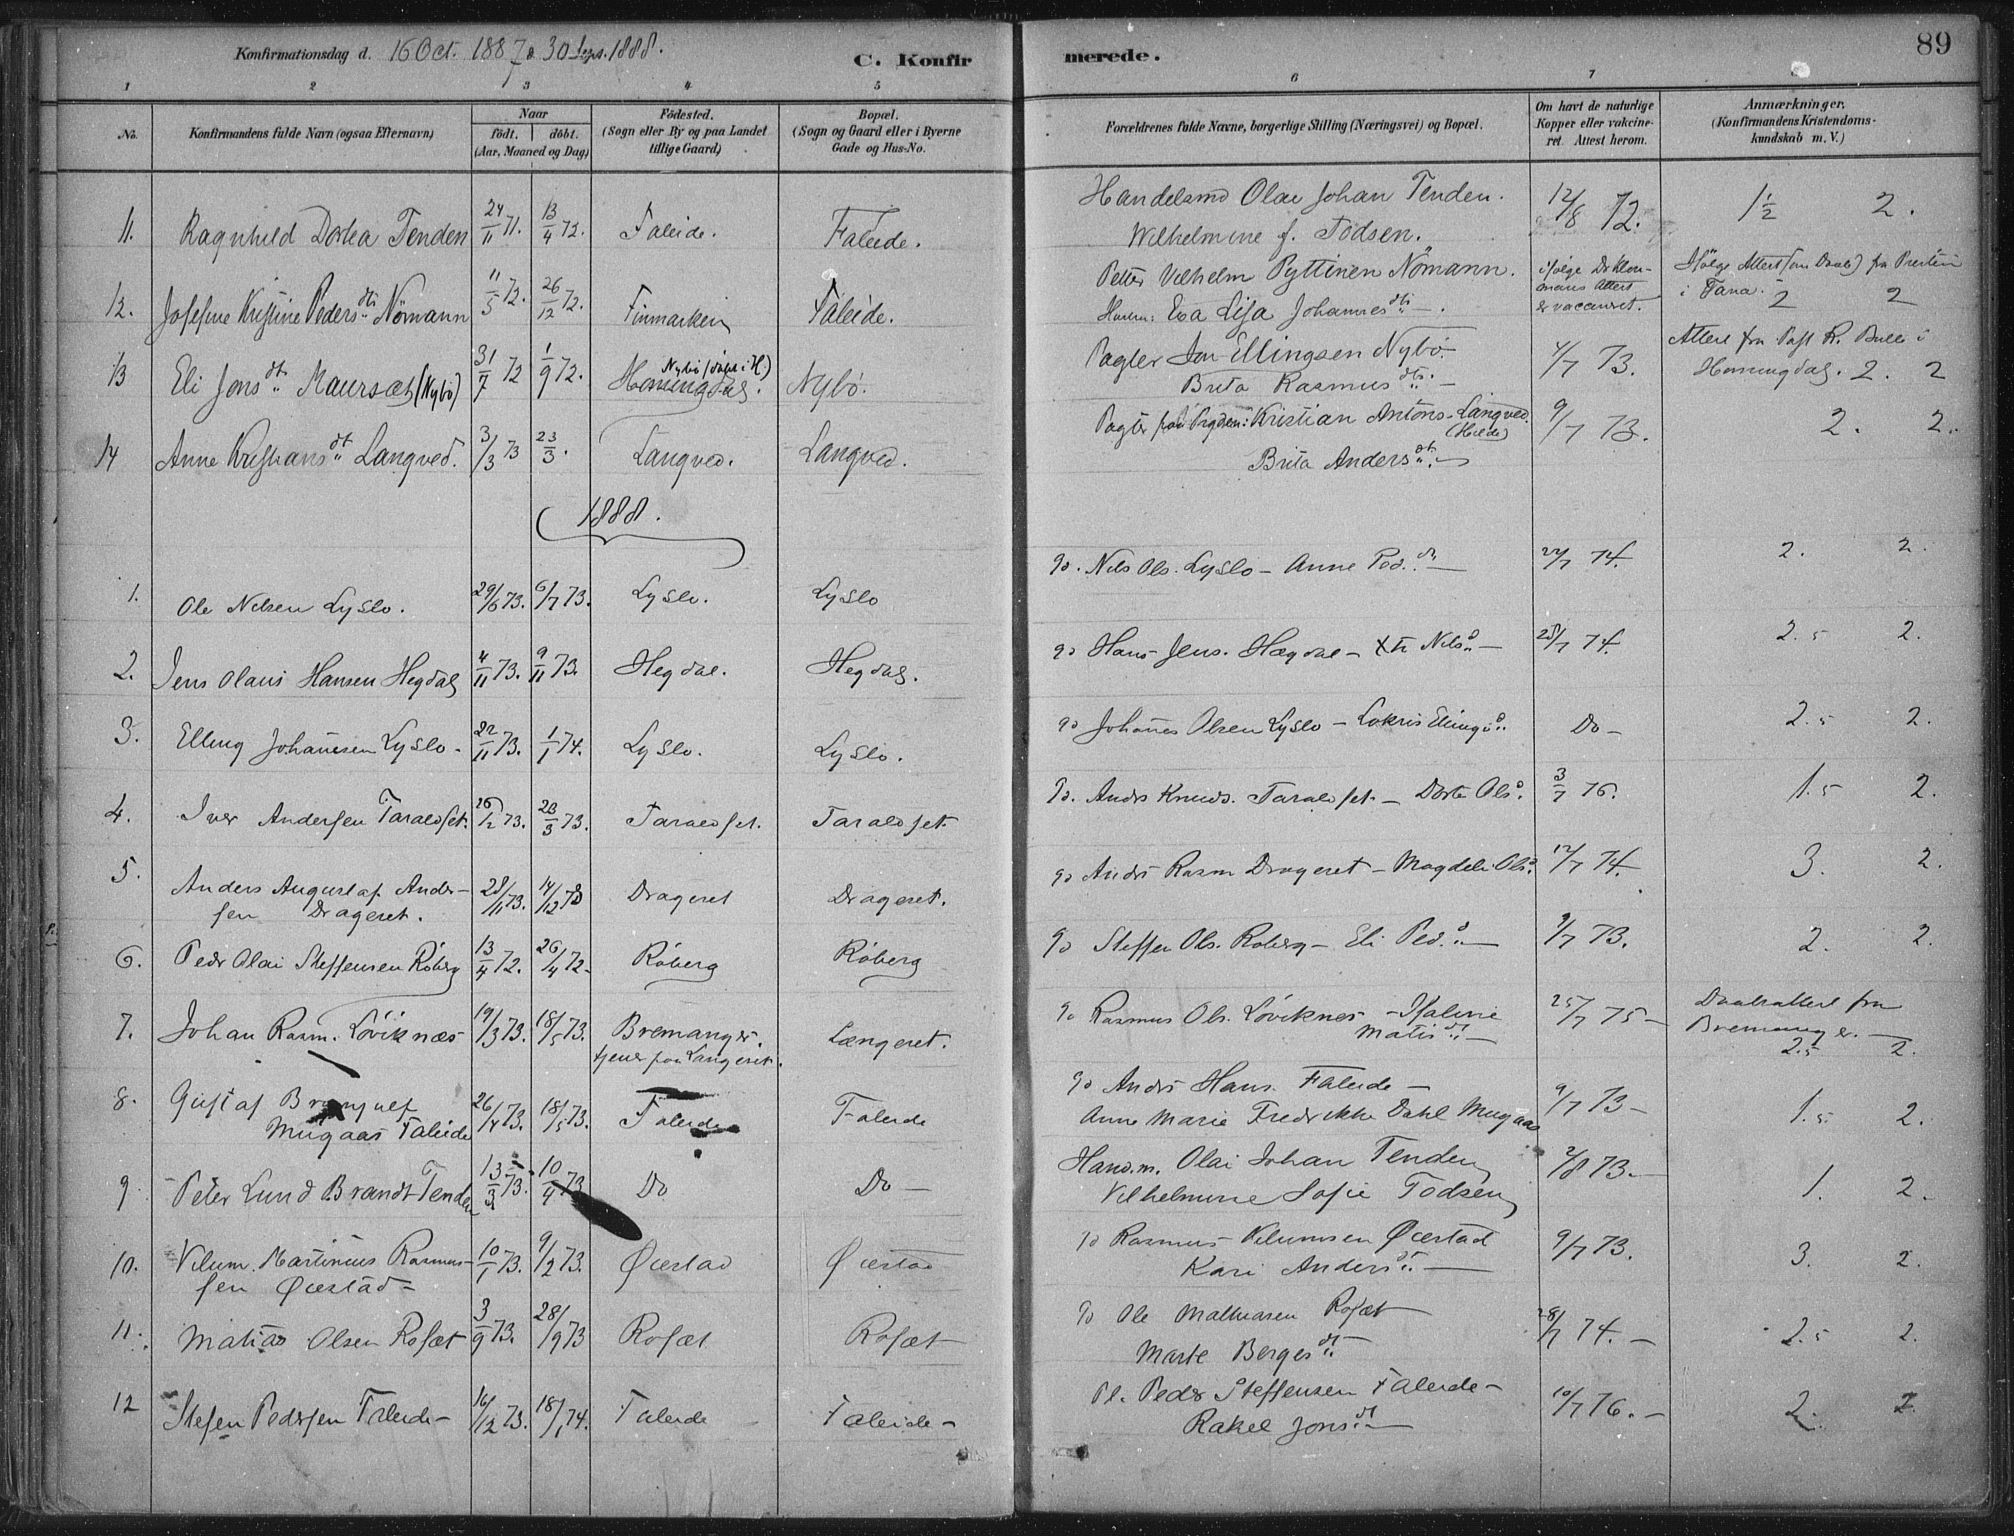 Konfirmationsdag d. 16 Oct. 1887 & 30 Sept. 1888.
C. Konfirmerede.
89
1 2 3 4 5 6 7
No.
Konfirmandens fulde Navn (ogsaa Efternavn)
Naar
födt. döbt.
(Aar, Maaned og Dag)
Födested.
(Sogn eller By og paa Landet
tillige Gaard)
Bopæl.
(Sogn og Gaard eller i Byerne
Gade og Hus-No.
Forældrenes fulde Navne, borgerlige Stilling (Næringsvei) og Bopæl.
Om havt de naturlige
Kopper eller vakcineret.
Attest herom.
Anmærkninger.
(Konfirmandens Kristendomskundskab
m. V.)
11. Ragnhild Dortea Tenden 24/11 71. 13/4 72. Faleide. Faleide. Handelsmd Olai Johan Tenden. 12/8 72. 1½ 2.
Wilhelmine f. Todsen.
12. Josefine Kristine Pedersdtr Nömann 11/5 72. 26/12 72. Finmarken Faleide. Petter Vilhelm Pyttinen Nömann. ifølge Dr Klou-
mans Attest
er vaccineret.
Ifölge Attest (om Daab) fra Presten
i Tana. 2 2
Hustru: Eva Lisa Johannesdtr.
13 Eli Jonsdtr Maursæt (Nybö) 31/7 72 1/9 72. Nybö (döbt i H.)
Horningdal. Nybö. Pagter Jon Ellingsen Nybö 4/7 73. Attest fra Past R. Bull i
Horningdal. 2. 2
Brita Rasmusdtr.
14 Anne Kristiansdt Langved. 3/3 73 23/3. Langved. Langved. Pagter paa Brygden: Kristian Antons. Langved. 9/7 73. 2. 2.
(Hilde)
Brita Andersdt.
1888.
1. Ole Nilsen Lyslo. 29/6 73. 6/7 73. Lyslo. Lyslo Gd. Nils Ols. Lyslo – Anne Ped.d 24/7 74. 2. 2.
2. Jens Olaus Hansen Hegdal 4/11 73. 9/11 73. Hegdal. Hegdal. Gd Hans Jens. Hægdal – Nilsd – 28/7 74. 2.5 2.
3. Elling Johannesen Lyslo – 22/11 73. 1/1 74. Lyslo. Lyslo. Gd Johannes Olsen Lyslo – Lokris Ellingsd. Do – 2.5 2.
4. Iver Andersen Taraldset. 16/2 73. 23/3 73. Taraldset. Taraldset. Gd. Anders Knuds. Taraldset – Dorte Olsd. 3/7 76. 1.5 2.
5. Anders Augustaf Ander-
sen Drageset. 28/11 73. 14/12 73 Drageset Drageset. Gd Anders Rasm Drageset – Magdele Olsd. 12/7 74. 3. 2.
6. Peder Olai Steffensen Röberg 13/4 72. 26/4 72 – Röberg Röberg Gd Steffen Ols. Roberg – Eli Ped.d – 9/7 73. 2. 2.
7. Johan Rasm. Löviknæs 19/3 73. 18/5 73. Bremanger.
tjener paa Langeset. Længeset. Gd Rasmus Ols. Löviknes – Isaline
Matisdt – 25/7 75 – Daabsattest fra
Bremanger. –
2.5 2.
8. Gustaf
Mugaas Faleide 26/4 73. 18/5 73. Faleide Faleide Gd Anders Hans. Faleide –
Anne Marie Fredrikke Dahl Mugaas 9/7 73 – 1.5. 2.
9 Peter Lund Brandt Tenden 13/3 73. 10/4 73 Do Do – Hand.m. Olai Johan Tenden
Vilhelmine Sofie Todsen 2/8 73. – 1. 2.
10. Vilum. Martinius Rasmus-
sen Örestad – 10/1 73. 9/2 73. Örestad Örestad Gd Rasmus Vilumsen Örestad
Kari Andersdt – 9/7 73. 3. 2.
11. Matias Olsen Rosæt 3/9 73. 28/9 73 Rosæt Rosæt Gd Ole Mathiasen Rosæt
Marte Bergesdt 28/7 74. – 2.5 2.
12 Stefen Pedersen Faleide – 16/12 73. 18/1 74. Faleide Faleide – Pl. Peder Steffensen Faleide –
Rakel Jonsdt – 10/7 76. – 2. 2.